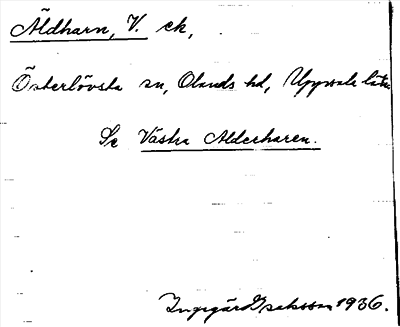 Äldharn, V. ek,
Österlövsta sn, Olands hd, Uppsala län
Se Västra Alderharen.
Ingegärd Isaksson 1936.